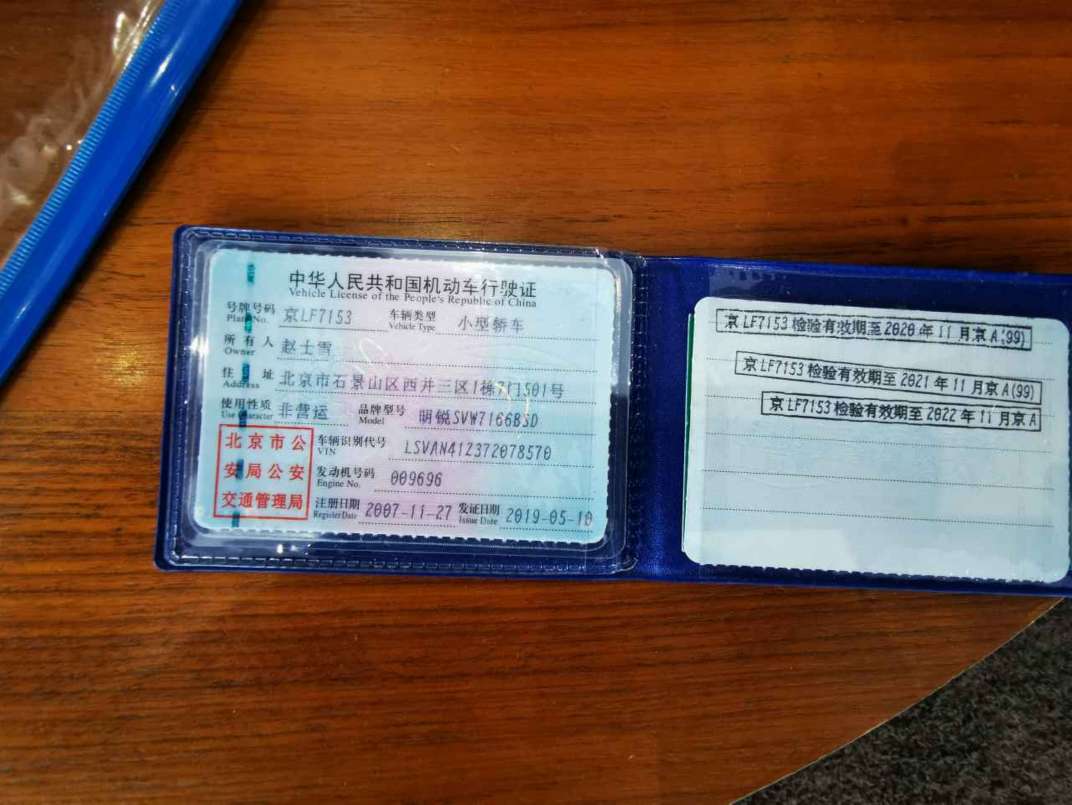 中华人民共和国机动车行驶证
Vehicle License of the People's Republic of China
号牌号码 京LF7153 车辆类型 小型轿车
Plate No. Vehicle Type
所有人 赵士雪
Owner
住址 北京市石景山区西井三区1栋7门501号
Address
使用性质 非营运 品牌型号 明锐SVW7166BSD
Use Character Model
北京市公安局公安交通管理局
车辆识别代号 LSVAN41Z372078570
VIN
发动机号码 009696
Engine No.
注册日期 2007-11-27 发证日期 2019-05-10
Register Date Issue Date
京LF7153检验有效期至2020年11月京A(99)
京LF7153检验有效期至2021年11月京A(99)
京LF7153检验有效期至2022年11月京A